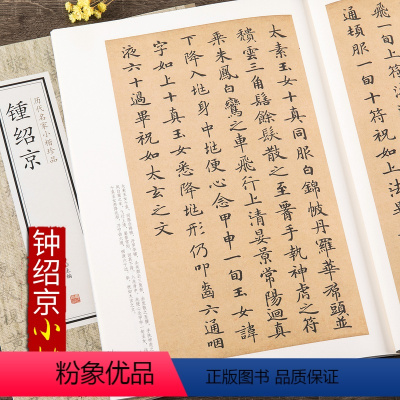 飛一旬上
通頓服一旬十符祝如
太素玉女十真同服白錦帔丹羅華帬頭並
積雲三角髻餘髮散之至署手執神虎之符
乘朱鳳白鸞之車飛行上清晏景常陽迴真
下降入地身中地便心念甲申一旬玉女諱
字如上十真玉女悉降地形仍叩齒六通咽
液六十過畢祝如太玄之文
历代名家小楷珍品
鍾绍京
钟绍京小
粉象优品
正版图书 品质保障